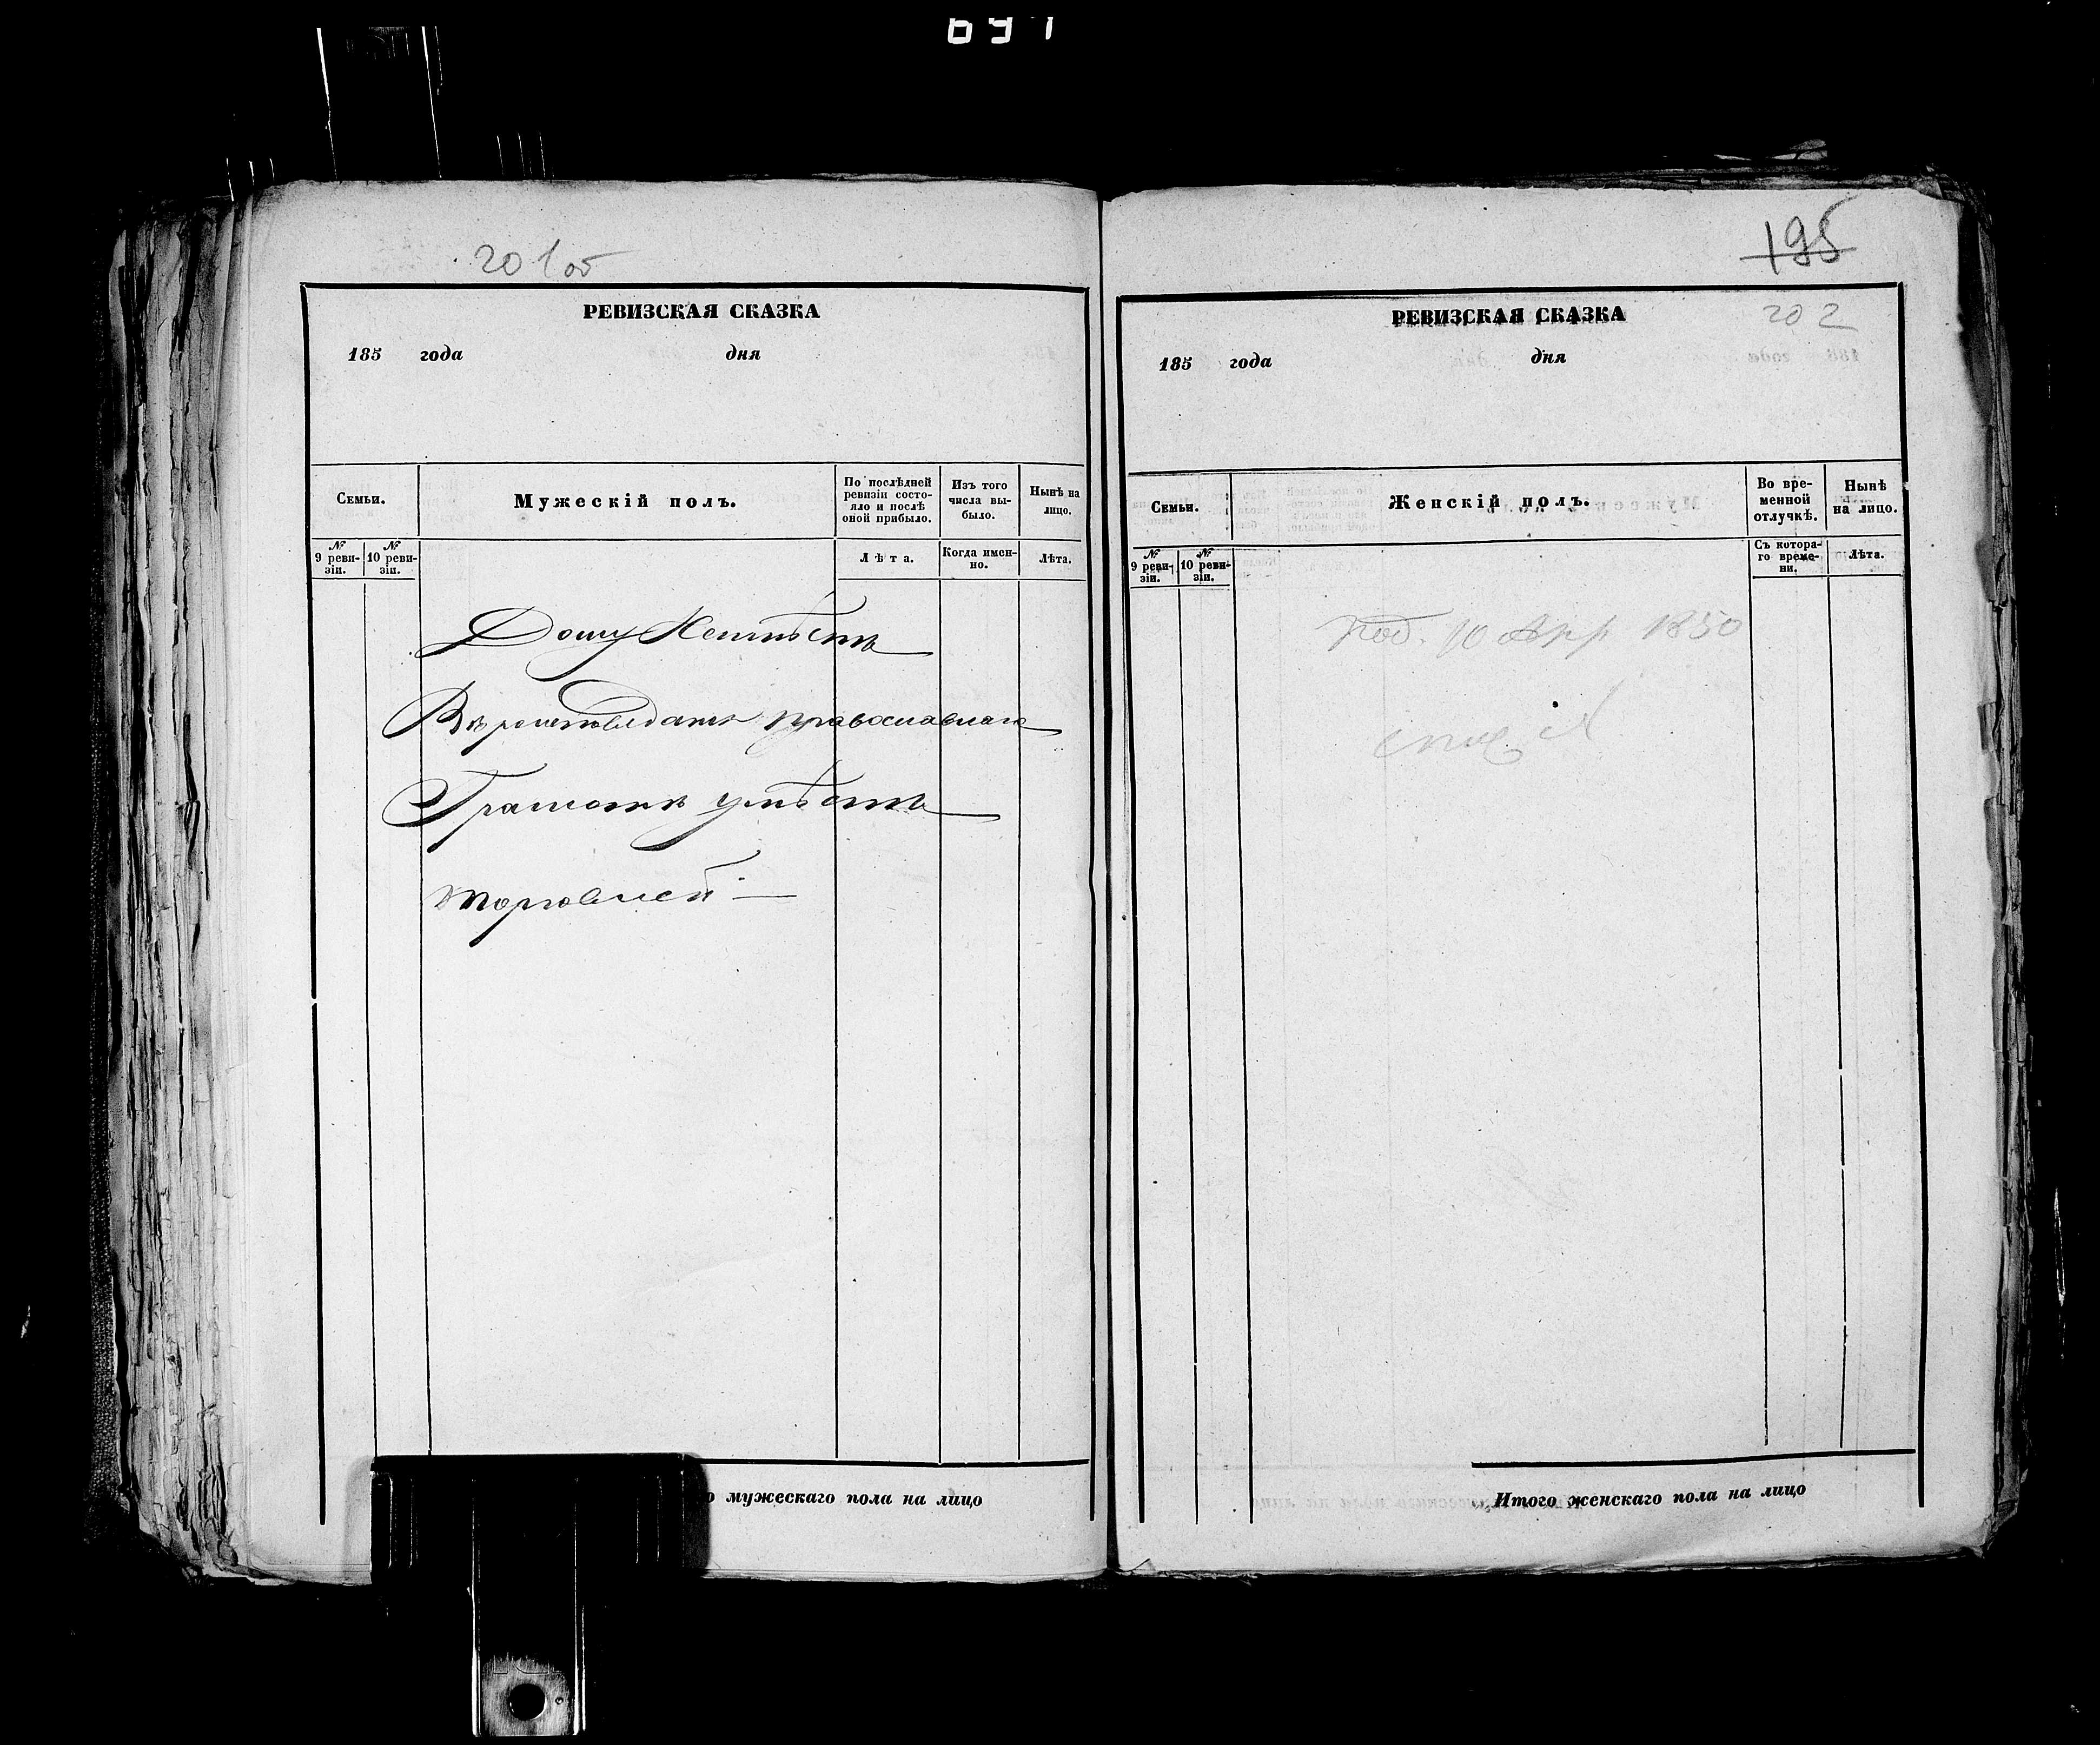 697
201об
РЕВИЗСКАЯ СКАЗКА
185 года дня
Семьи.
Мужескій полъ.
По послѣдней ревизіи состо-
яло и послѣ оной прибыло.
Изъ того числа вы-
было.
Нынѣ на лицо.
№ 9 реви-
зіи.
№ 10 реви-
зіи.
Лѣта.
Когда имен-
но.
Лѣта.
Дому Неимѣетъ
Вѣроисповѣданія православнаго
Грамотѣ умѣетъ
торговлей
мужескаго пола на лицо
195
202
РЕВИЗСКАЯ СКАЗКА
185 года дня
Семьи.
Женскій полъ.
Во вре-
менной отлучкѣ.
Нынѣ на лицо.
№ 9 реви-
зіи.
№ 10 реви-
зіи.
Съ котора-
го време-
ни.
Лѣта.
10 Апр 1850
Итого женскаго пола на лицо